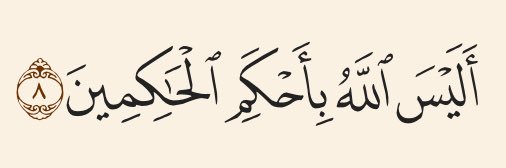 أَلَيْسَ ٱللَّهُ بِأَحْكَمِ ٱلْحَـٰكِمِينَ ٨